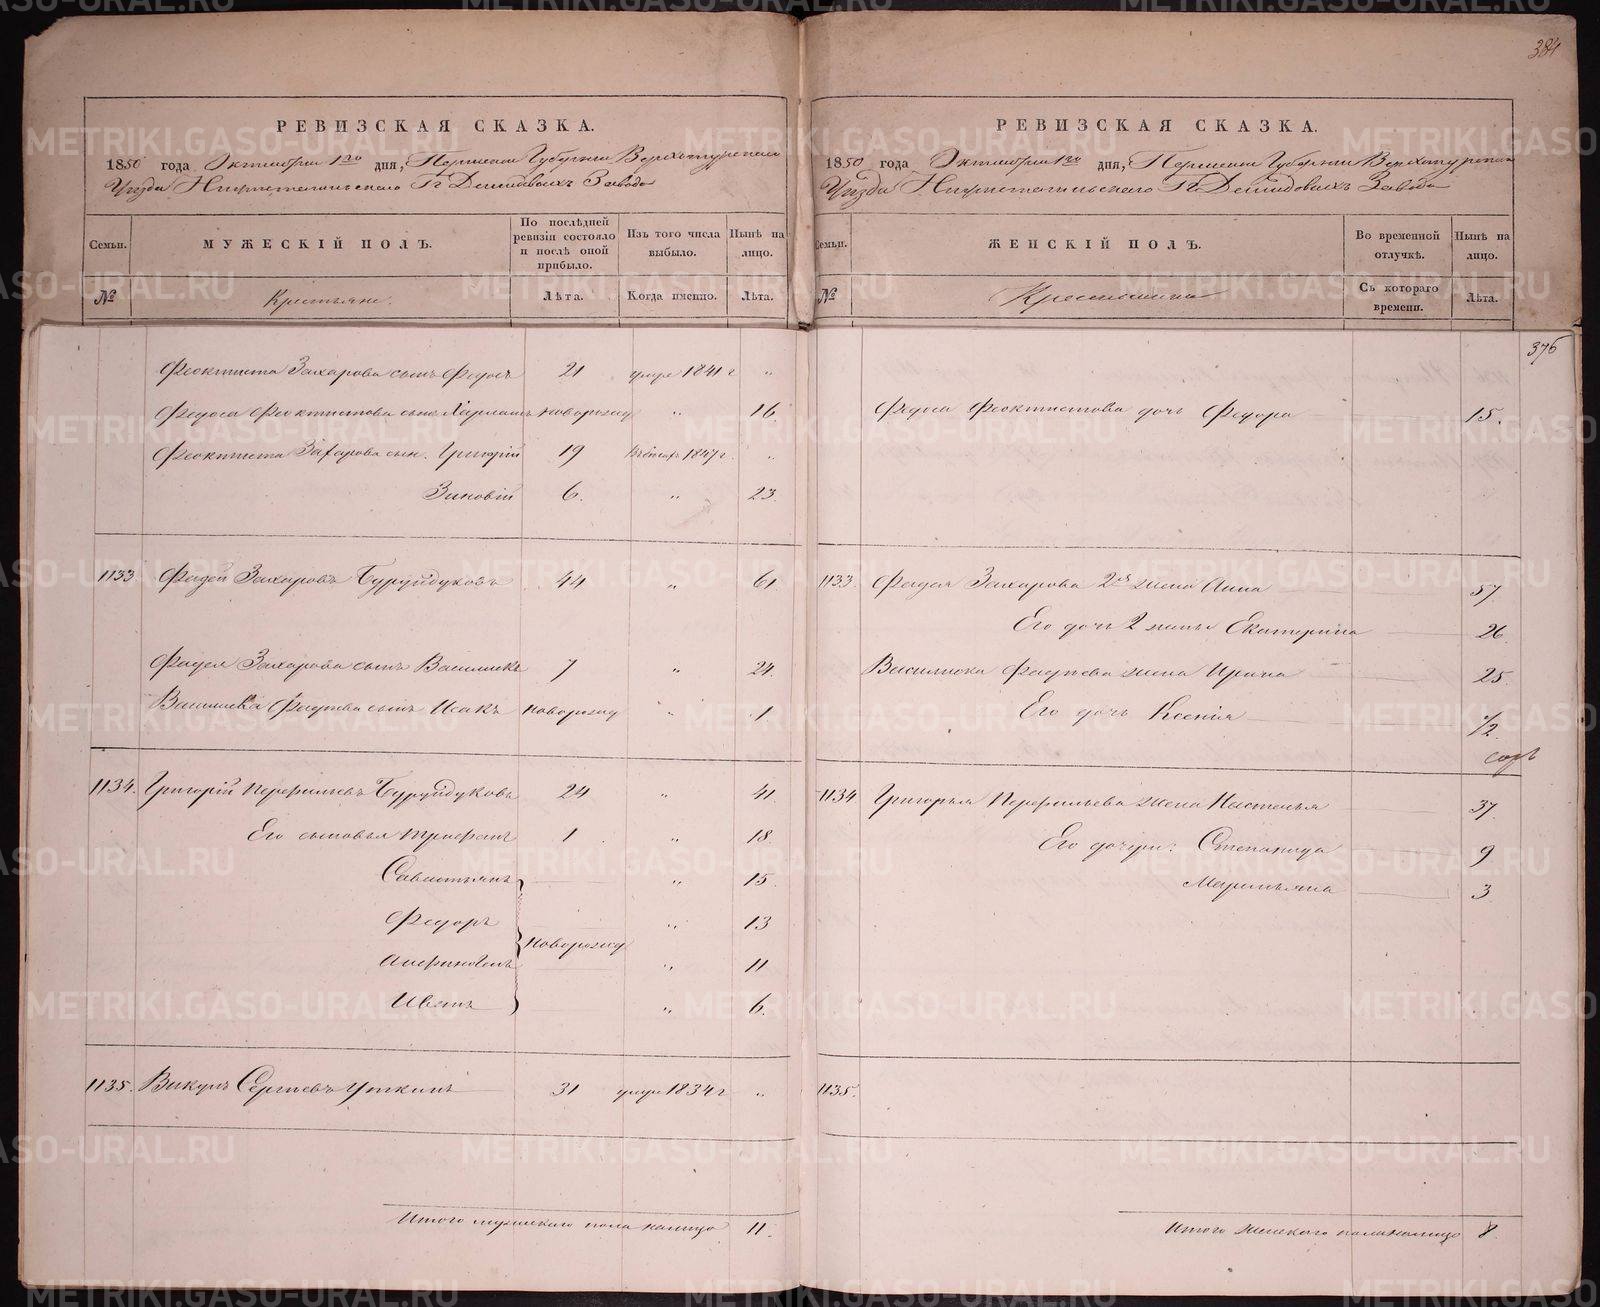 384
РЕВИЗСКАЯ СКАЗКА.
1850 года Октября 1го дня, Пермской Губернии Верхотурскаго
Уѣзда Нижнетагильскаго Гг Демидовыхъ Завода
Семьи. МУЖЕСКІЙ ПОЛЪ. По послѣдней ревизіи состояло и послѣ оной прибыло. Изъ того числа выбыло. Нынѣ на лицо.
№ Крестьяне. Лѣта. Когда именно. Лѣта.
Феоктиста Захарова сынъ Федосъ 21 умре 1841 г "
Федоса Феоктистова сынъ Харлампъ новорожд " 16
Феоктиста Захарова сын. Григорій 19 1847 г. "
Зиновій 6. " 23
1133 Фадей Захаровъ Бурундуковъ 44 " 61
Фадея Захарова сынъ Василискъ 7 " 24
Василиска Фадѣева сынъ Исакъ новорожд " 1
1134. Григорій Перфильевъ Бурундуковъ 24 " 41
Его сыновья Трифанъ 1 " 18
Савастьянъ " 15
Федоръ " 13
новорожд
Анфиногенъ " 11
" 6.
1135. Викулъ Сергѣевъ Уткинъ 31 умре 1834 г "
Итого мужескаго пола налицо 11.
РЕВИЗСКАЯ СКАЗКА.
1850 года Октября 1го дня, Пермской Губернии Верхотурскаго
Уѣзда Нижнетагильскаго Гг Демидовыхъ Завода
Семьи. ЖЕНСКІЙ ПОЛЪ. Во временной отлучкѣ. Нынѣ на лицо.
№ Крестьянки Съ котораго времени. Лѣта.
376
Федоса Феоктистова дочь Федора 15.
1133. Фадея Захарова 2я жена Анна 57
Его дочь 2 жены Екатерина 26
Василиска Фадѣева жена Ирина 25
Его дочь Ксенія 1/2
1134 Григорья Перфильева жена Настасья 37
Его дочери: Степанида 9
Маремьяна 3
1135.
Итого женскаго пола налицо 8
METRIKI.GASO-URAL.RU